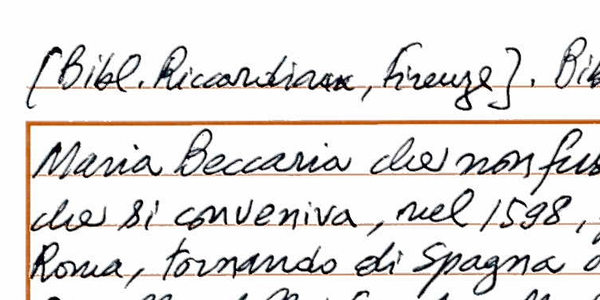 [Bibl. Riccardiana, Firenze]. Bib
Maria Beccaria che non fus
che si conveniva, nel 1598,
Roma, tornando di Spagna